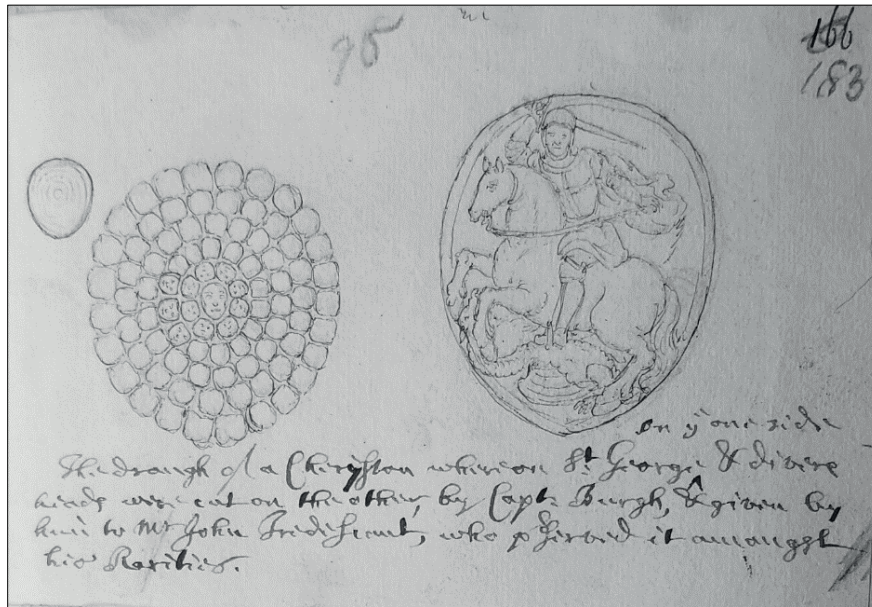 95
166
183
on yͤ one side
The draugh of a Cheryston whereon St. George & divers
heads were cut on the other, by Capt. Burgh, & given by
him to Mr John Tredescant, who pʳserved it amongst
his Rarities.